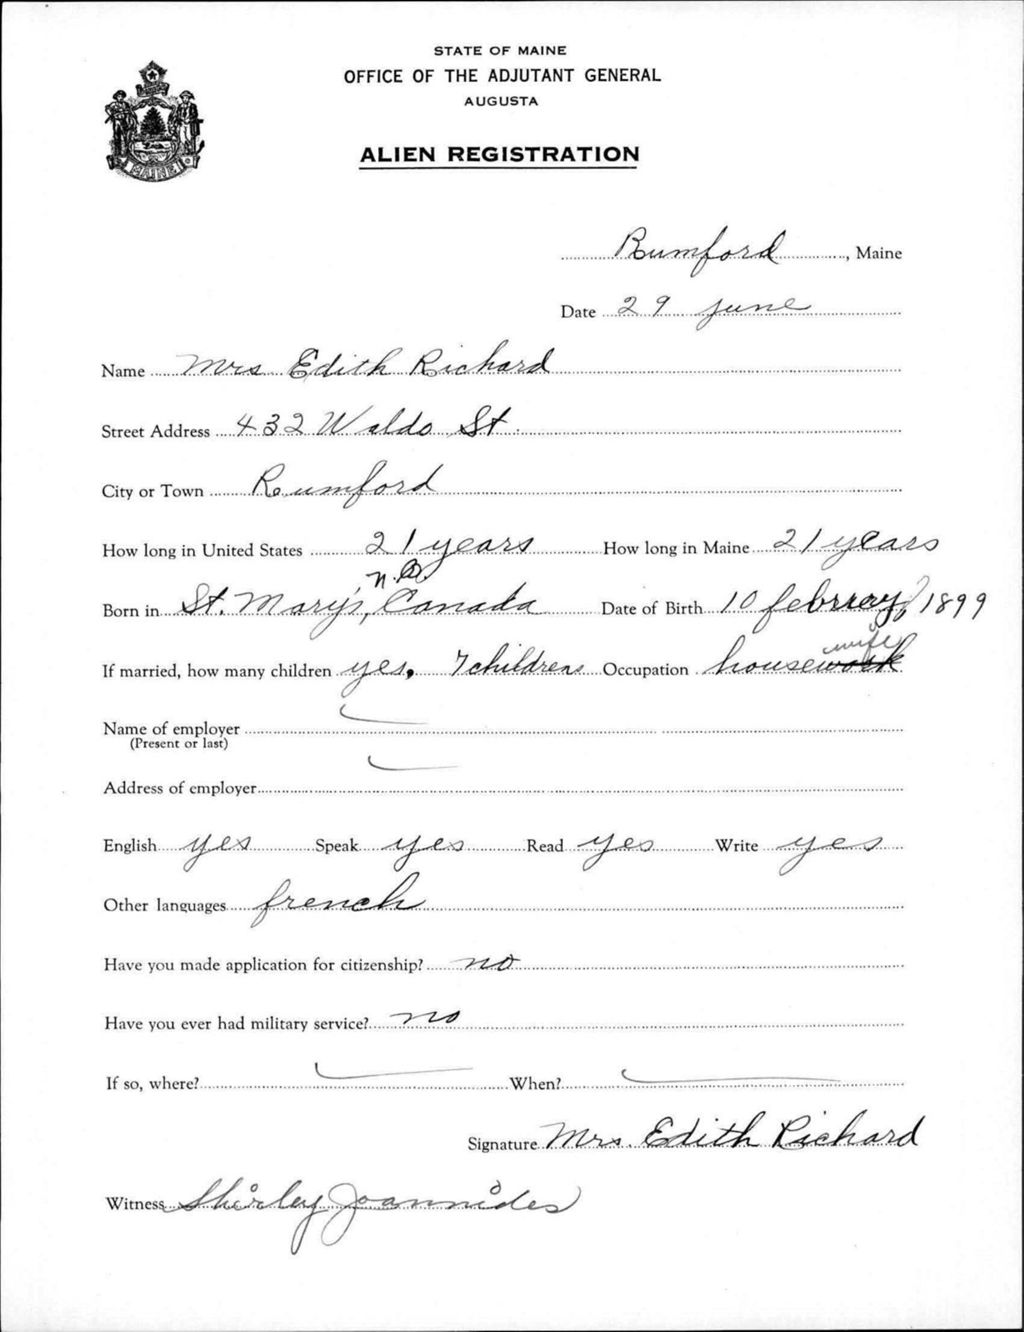 STATE OF MAINE
OFFICE OF THE ADJUTANT GENERAL
AUGUSTA
ALIEN REGISTRATION
MAINE
Rumford, Maine
Date 29 june
Name Mrs Edith Richard
Street Address 432 Waldo St.
City or Town Rumford
How long in United States 21 years How long in Maine 21 years
n.B.
Born in St. Mary's, Canada Date of Birth 10 febrray, 1899
wife
If married, how many children yes, 7 childrens Occupation housework
Name of employer
(Present or last)
Address of employer
English yes Speak yes Read yes Write yes
Other languages french
Have you made application for citizenship? no
Have you ever had military service? no
If so, where? When?
Signature Mrs. Edith Richard
Witness Shirley Joannides